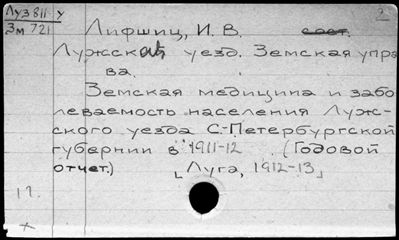 Луз 811 у
Зм 721
2
Лифшиц, И. В. сост.
Лужская уезд. Земская упра
ва.
Земская медицина и забо
леваемость населения Луж-
ского уезда С.-Петербургской
губернии в 1911-12 (Годовой
отчет.) [Луга, 1912-13]
1?.
x